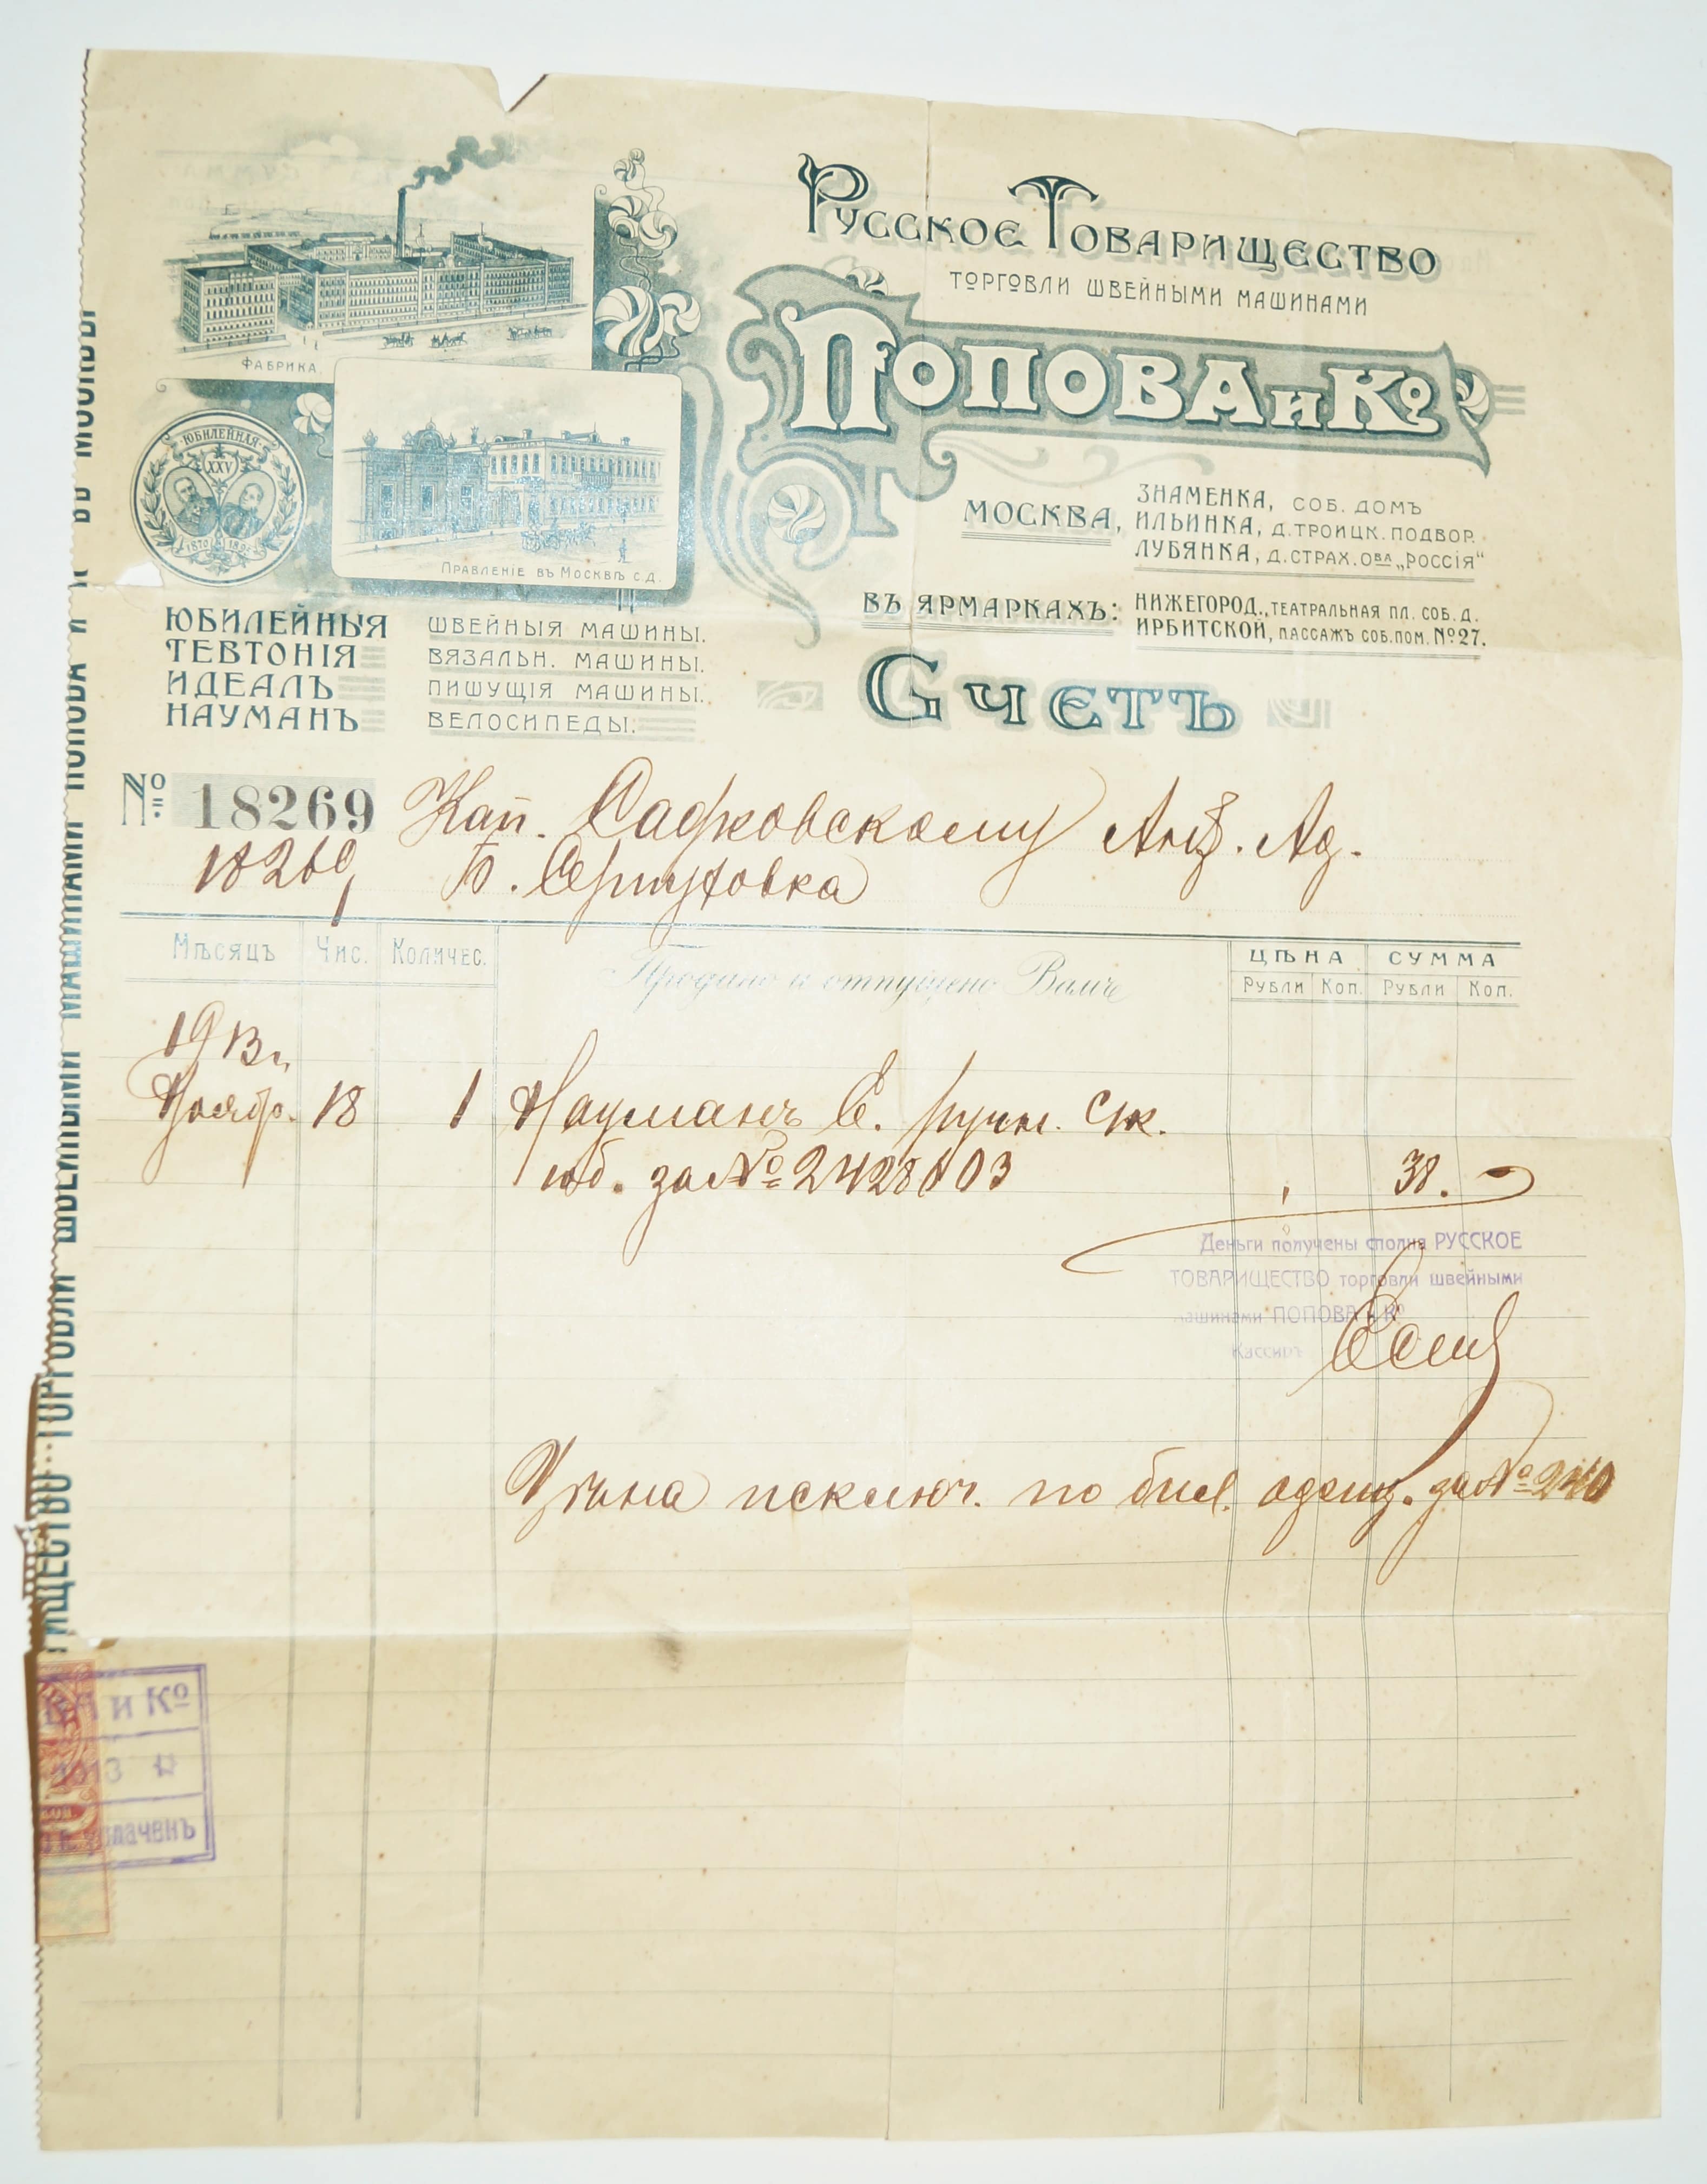 Русское Товарищество
торговли швейными машинами
Попова и Ко
Фабрика.
Юбилейная
XXV
1870
Правленіе въ Москвѣ с.д.
Москва,
Знаменка, соб. домъ
Ильинка, д. Троицк. подвор.
Лубянка, д. страх. Овa „Россія“
Въ ярмаркахъ:
Нижегород., Театральная пл. соб. д.
Ирбитской, Пассажъ соб. пом. № 27.
Юбилейныя
Тевтонія
Идеалъ
Науманъ
швейныя машины.
вязальн. машины.
пишущія машины.
велосипеды.
Счетъ
№ 18269
Кап. Садковскому Ад.
18269
Б. Серпуховка
Мѣсяцъ Чис. Количес. Продано и отпущено Вамъ Цѣна Сумма
Рубли Коп. Рубли Коп.
1913 г.
Ноябр. 18 1 Науманъ С. ручн.
юб. за № 38. -
Деньги получены сполна РУССКОЕ
ТОВАРИЩЕСТВО торговли швейными
машинами ПОПОВА и Ко
Кассиръ
Цѣна исключ. по за № 240
ТОРГОВЛИ ШВЕЙНЫМИ МАШИНАМИ ПОПОВА И К ВЪ МОСКВЫ
и Ко
уплаченъ